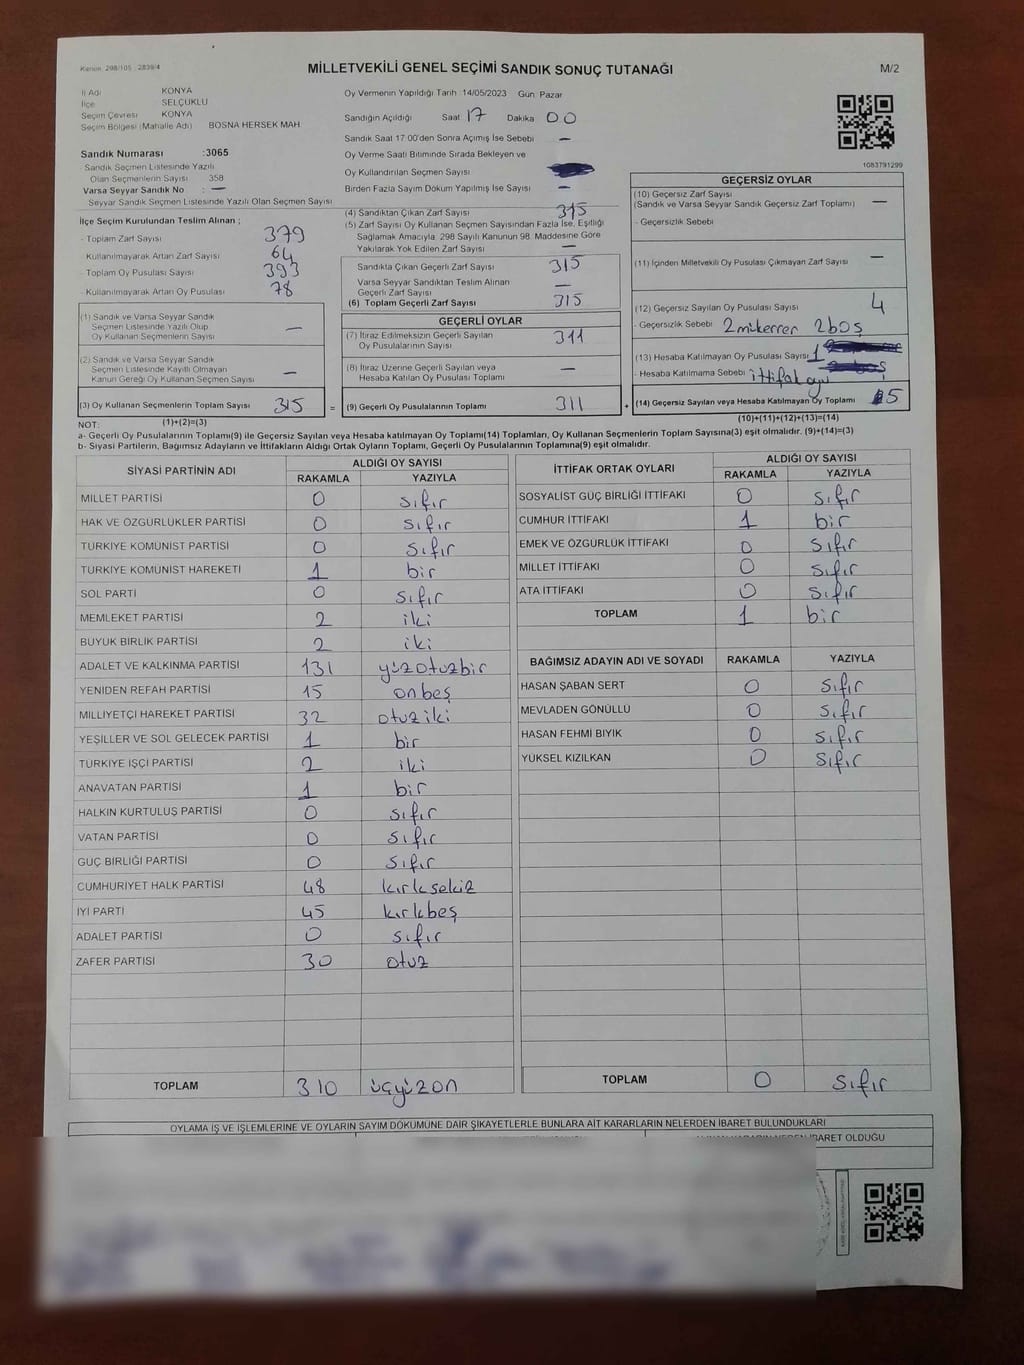 Kanun 298/105 2839/4
MİLLETVEKİLİ GENEL SEÇİMİ SANDIK SONUÇ TUTANAĞI
M/2
İl Adı KONYA
İlçe SELÇUKLU
Seçim Çevresi KONYA
Seçim Bölgesi (Mahalle Adı) BOSNA HERSEK MAH
Sandık Numarası :3065
- Sandık Seçmen Listesinde Yazılı
Olan Seçmenlerin Sayısı 358
Varsa Seyyar Sandık No : —
Seyyar Sandık Seçmen Listesinde Yazılı Olan Seçmen Sayısı
Oy Vermenin Yapıldığı Tarih :14/05/2023 Gün: Pazar
Sandığın Açıldığı Saat 17 Dakika 00
Sandık Saat 17:00'den Sonra Açılmış İse Sebebi —
Oy Verme Saati Bitiminde Sırada Bekleyen ve
Oy Kullandırılan Seçmen Sayısı
Birden Fazla Sayım Döküm Yapılmış İse Sayısı —
1083791299
İlçe Seçim Kurulundan Teslim Alınan ;
- Toplam Zarf Sayısı 379
- Kullanılmayarak Artan Zarf Sayısı 64
- Toplam Oy Pusulası Sayısı 393
- Kullanılmayarak Artan Oy Pusulası 78
(1) Sandık ve Varsa Seyyar Sandık
Seçmen Listesinde Yazılı Olup
Oy Kullanan Seçmenlerin Sayısı —
(2) Sandık ve Varsa Seyyar Sandık
Seçmen Listesinde Kayıtlı Olmayan
Kanun Gereği Oy Kullanan Seçmen Sayısı —
(3) Oy Kullanan Seçmenlerin Toplam Sayısı 315 =
(4) Sandıktan Çıkan Zarf Sayısı 315
(5) Zarf Sayısı Oy Kullanan Seçmen Sayısından Fazla İse, Eşitliği
Sağlamak Amacıyla, 298 Sayılı Kanunun 98. Maddesine Göre
Yakılarak Yok Edilen Zarf Sayısı —
Sandıkta Çıkan Geçerli Zarf Sayısı 315
Varsa Seyyar Sandıktan Teslim Alınan
Geçerli Zarf Sayısı —
(6) Toplam Geçerli Zarf Sayısı 315
GEÇERLİ OYLAR
(7) İtiraz Edilmeksizin Geçerli Sayılan
Oy Pusulalarının Sayısı 311
(8) İtiraz Üzerine Geçerli Sayılan veya
Hesaba Katılan Oy Pusulaları Toplamı —
(9) Geçerli Oy Pusulalarının Toplamı 311 +
GEÇERSİZ OYLAR
(10) Geçersiz Zarf Sayısı
(Sandık ve Varsa Seyyar Sandık Geçersiz Zarf Toplamı) —
- Geçersizlik Sebebi
(11) İçinden Milletvekili Oy Pusulası Çıkmayan Zarf Sayısı —
(12) Geçersiz Sayılan Oy Pusulası Sayısı 4
- Geçersizlik Sebebi 2 mükerrer 2 boş
(13) Hesaba Katılmayan Oy Pusulası Sayısı 1
- Hesaba Katılmama Sebebi ittifak oyu
(14) Geçersiz Sayılan veya Hesaba Katılmayan Oy Toplamı 5
NOT: (1)+(2)=(3)
(10)+(11)+(12)+(13)=(14)
a- Geçerli Oy Pusulalarının Toplamı(9) ile Geçersiz Sayılan veya Hesaba katılmayan Oy Toplamı(14) Toplamları, Oy Kullanan Seçmenlerin Toplam Sayısına(3) eşit olmalıdır. (9)+(14)=(3)
b- Siyasi Partilerin, Bağımsız Adayların ve İttifakların Aldığı Ortak Oyların Toplamı, Geçerli Oy Pusulalarının Toplamına(9) eşit olmalıdır.
SİYASİ PARTİNİN ADI ALDIĞI OY SAYISI
RAKAMLA YAZIYLA
MİLLET PARTİSİ 0 sıfır
HAK VE ÖZGÜRLÜKLER PARTİSİ 0 sıfır
TÜRKİYE KOMÜNİST PARTİSİ 0 sıfır
TÜRKİYE KOMÜNİST HAREKETİ 1 bir
SOL PARTİ 0 sıfır
MEMLEKET PARTİSİ 2 iki
BÜYÜK BİRLİK PARTİSİ 2 iki
ADALET VE KALKINMA PARTİSİ 131 yüzotuzbir
YENİDEN REFAH PARTİSİ 15 onbeş
MİLLİYETÇİ HAREKET PARTİSİ 32 otuziki
YEŞİLLER VE SOL GELECEK PARTİSİ 1 bir
TÜRKİYE İŞÇİ PARTİSİ 2 iki
ANAVATAN PARTİSİ 1 bir
HALKIN KURTULUŞ PARTİSİ 0 sıfır
VATAN PARTİSİ 0 sıfır
GÜÇ BİRLİĞİ PARTİSİ 0 sıfır
CUMHURİYET HALK PARTİSİ 48 kırksekiz
İYİ PARTİ 45 kırkbeş
ADALET PARTİSİ 0 sıfır
ZAFER PARTİSİ 30 otuz
TOPLAM 310 üçyüzon
İTTİFAK ORTAK OYLARI ALDIĞI OY SAYISI
RAKAMLA YAZIYLA
SOSYALİST GÜÇ BİRLİĞİ İTTİFAKI 0 sıfır
CUMHUR İTTİFAKI 1 bir
EMEK VE ÖZGÜRLÜK İTTİFAKI 0 sıfır
MİLLET İTTİFAKI 0 sıfır
ATA İTTİFAKI 0 sıfır
TOPLAM 1 bir
BAĞIMSIZ ADAYIN ADI VE SOYADI RAKAMLA YAZIYLA
HASAN ŞABAN SERT 0 sıfır
MEVLADEN GÖNÜLLÜ 0 sıfır
HASAN FEHMİ BIYIK 0 sıfır
YÜKSEL KIZILKAN 0 sıfır
TOPLAM 0 sıfır
OYLAMA İŞ VE İŞLEMLERİNE VE OYLARIN SAYIM DÖKÜMÜNE DAİR ŞİKAYETLERLE BUNLARA AİT KARARLARIN NELERDEN İBARET BULUNDUKLARI
İBARET OLDUĞU